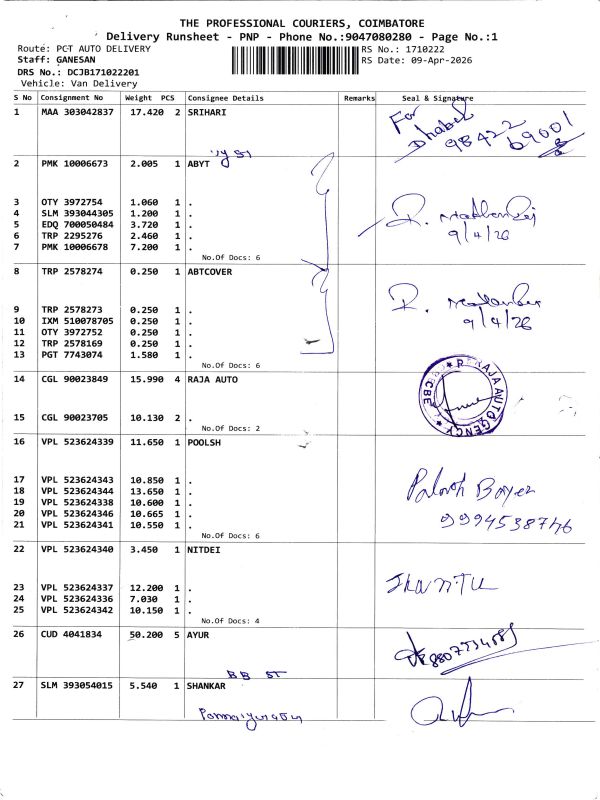 THE PROFESSIONAL COURIERS, COIMBATORE
Delivery Runsheet - PNP - Phone No.:9047080280 - Page No.:1
Route: PCT AUTO DELIVERY RS No.: 1710222
Staff: GANESAN RS Date: 09-Apr-2026
DRS No.: DCJB171022201
Vehicle: Van Delivery
S No Consignment No Weight PCS Consignee Details Remarks Seal & Signature
1 MAA 303042837 17.420 2 SRIHARI
For
Dhabel
98422
69001
2 PMK 10006673 2.005 1 ABYT
3 OTY 3972754 1.060 1 .
4 SLM 393044305 1.200 1 .
5 EDQ 700050484 3.720 1 .
6 TRP 2295276 2.460 1 .
9/4/26
7 PMK 10006678 7.200 1 .
No.Of Docs: 6
8 TRP 2578274 0.250 1 ABTCOVER
9 TRP 2578273 0.250 1 .
10 IXM 510078705 0.250 1 .
9/4/26
11 OTY 3972752 0.250 1 .
12 TRP 2578169 0.250 1 .
13 PGT 7743074 1.580 1 .
No.Of Docs: 6
14 CGL 90023849 15.990 4 RAJA AUTO
RAJA AUTO AGENCY CBE
15 CGL 90023705 10.130 2 .
No.Of Docs: 2
16 VPL 523624339 11.650 1 POOLSH
17 VPL 523624343 10.850 1 .
18 VPL 523624344 13.650 1 .
19 VPL 523624338 10.600 1 .
20 VPL 523624346 10.665 1 .
21 VPL 523624341 10.550 1 .
9994538746
No.Of Docs: 6
22 VPL 523624340 3.450 1 NITDEI
23 VPL 523624337 12.200 1 .
24 VPL 523624336 7.030 1 .
25 VPL 523624342 10.150 1 .
No.Of Docs: 4
26 CUD 4041834 50.200 5 AYUR
BB ST
27 SLM 393054015 5.540 1 SHANKAR